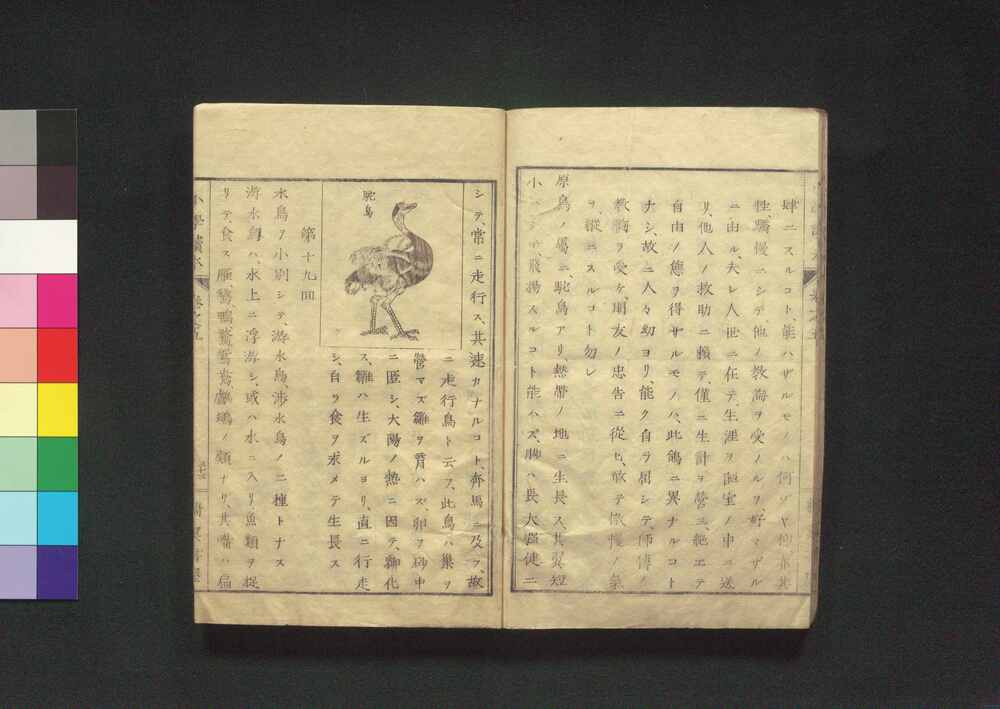 肆ニスルコト、能ハザルモノハ何ゾヤ
性、驕慢ニシテ、他ノ教誨ヲ受ノルヲ、好マザル
ニ由ル、夫レ人世ニ在テ、生涯ヲ ノ中ニ送
リ、他人ノ救助ニ頼テ、僅ニ生計ヲ營ミ、絶エテ
自由ノ ヲ得ザルモノハ、此鴿ニ異ナルコト
ナシ、故ニ人々幼ヨリ、能ク自ラ屈シテ、師傅ノ
教誨ヲ受ケ、朋友ノ忠告ニ從ヒ、敢テ 慢ノ氣
ヲ、縱ニスルコト勿レ
原鳥ノ屬ニ、駝鳥アリ、熱帶ノ地ニ生長ス、其翼短
小ニシテ、飛揚スルコト能ハズ、脚ハ長大 健ニ
シテ、常ニ走行ス、其速カナルコト、奔馬ニ及ブ、故
ニ走行鳥ト云フ、此鳥ハ巢ヲ
營マズ、雛ヲ育ハズ、卵ヲ砂中
ニ匿シ、大陽ノ熱ニ因テ、孵化
ス、雛ハ生ズルヨリ、直ニ行走
シ、自ラ食ヲ求メテ生長ス
駝鳥
第十九回
水鳥ヲ小別シテ、游水鳥、渉水鳥ノ二種トナス
游水鳥ハ、水上ニ浮游シ、或ハ水ニ入リ魚類ヲ捉
リテ、食ス、雁、鵞、鴨、鶩、鴛鴦、鸕鶿ノ類ナリ、其嘴ハ扁
小學讀本
卷之五